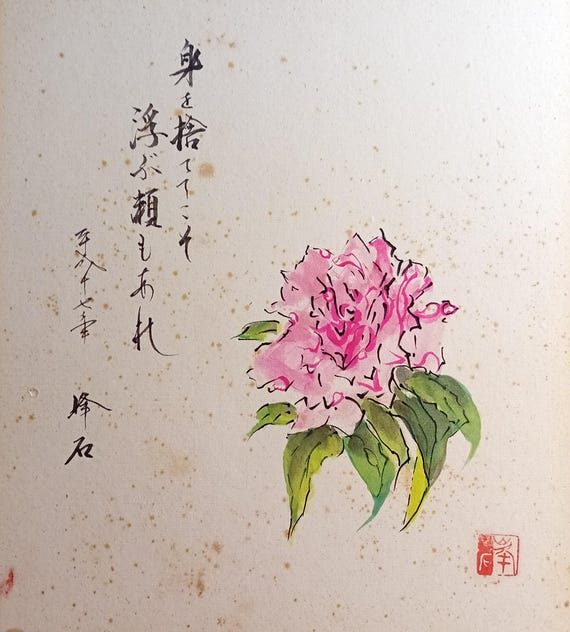 身を捨ててこそ
浮ぶ頼もあれ
平成十七年
峰石